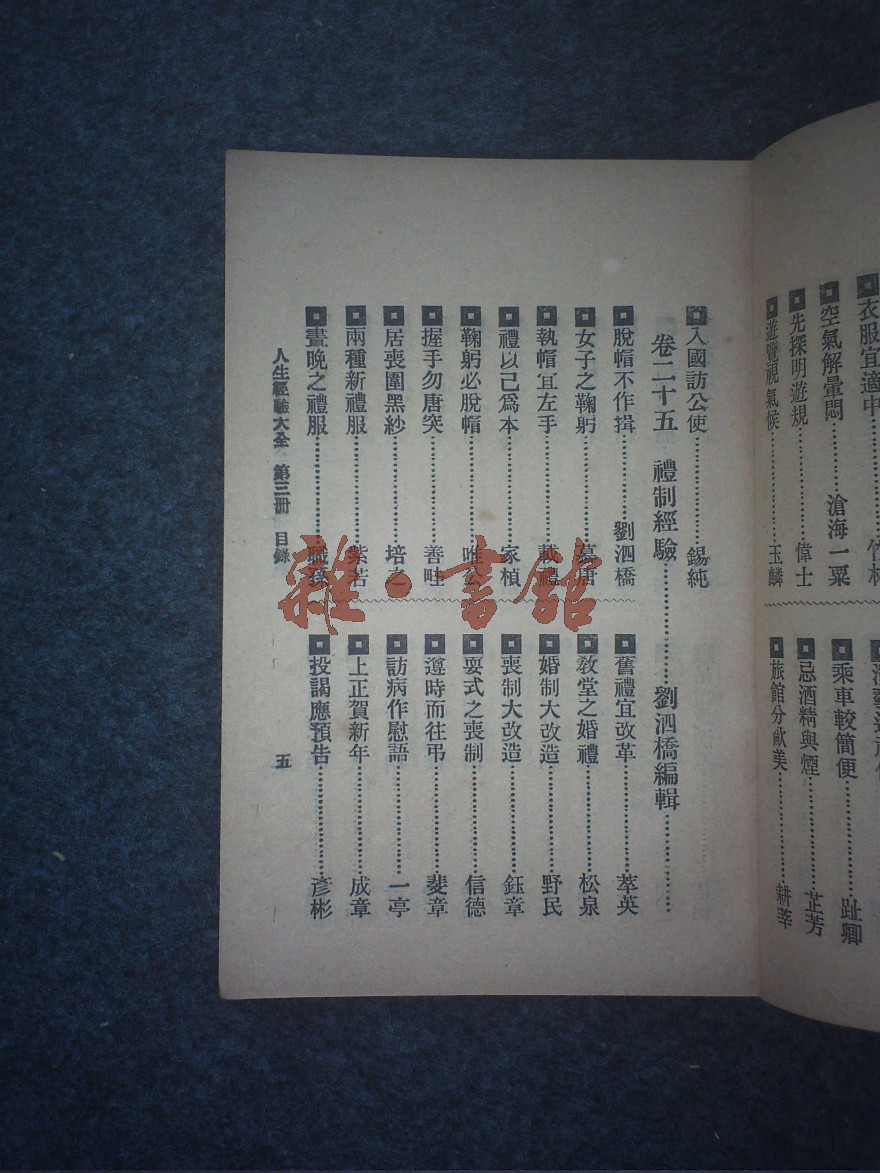 衣服宜適中……竹林
空氣解暈悶……滄海一粟
先探明遊規……偉士
遊覽視氣候……玉麟
乘車較簡便……趾卿
忌酒精與煙……芷芳
旅館分歐美……耕莘
入國訪公使……錫純
卷二十五 禮制經驗……劉泗橋編輯……
脫帽不作揖……劉泗橋
女子之鞠躬……慕唐
執帽宜左手……戴禮
禮以己爲本……家楨
鞠躬必脫帽……唯公
握手勿唐突……善畦
居喪圍黑紗……培之
兩種新禮服……紫若
晝晚之禮服……職孫
舊禮宜改革……萃英
敎堂之婚禮……松泉
婚制大改造……野民
喪制大改造……鈺章
耍式之喪制……信德
遵時而往弔……斐章
訪病作慰語……一亭
上正賀新年……成章
投謁應預告……彥彬
人生經驗大全 第三冊 目錄
五
雜·書館